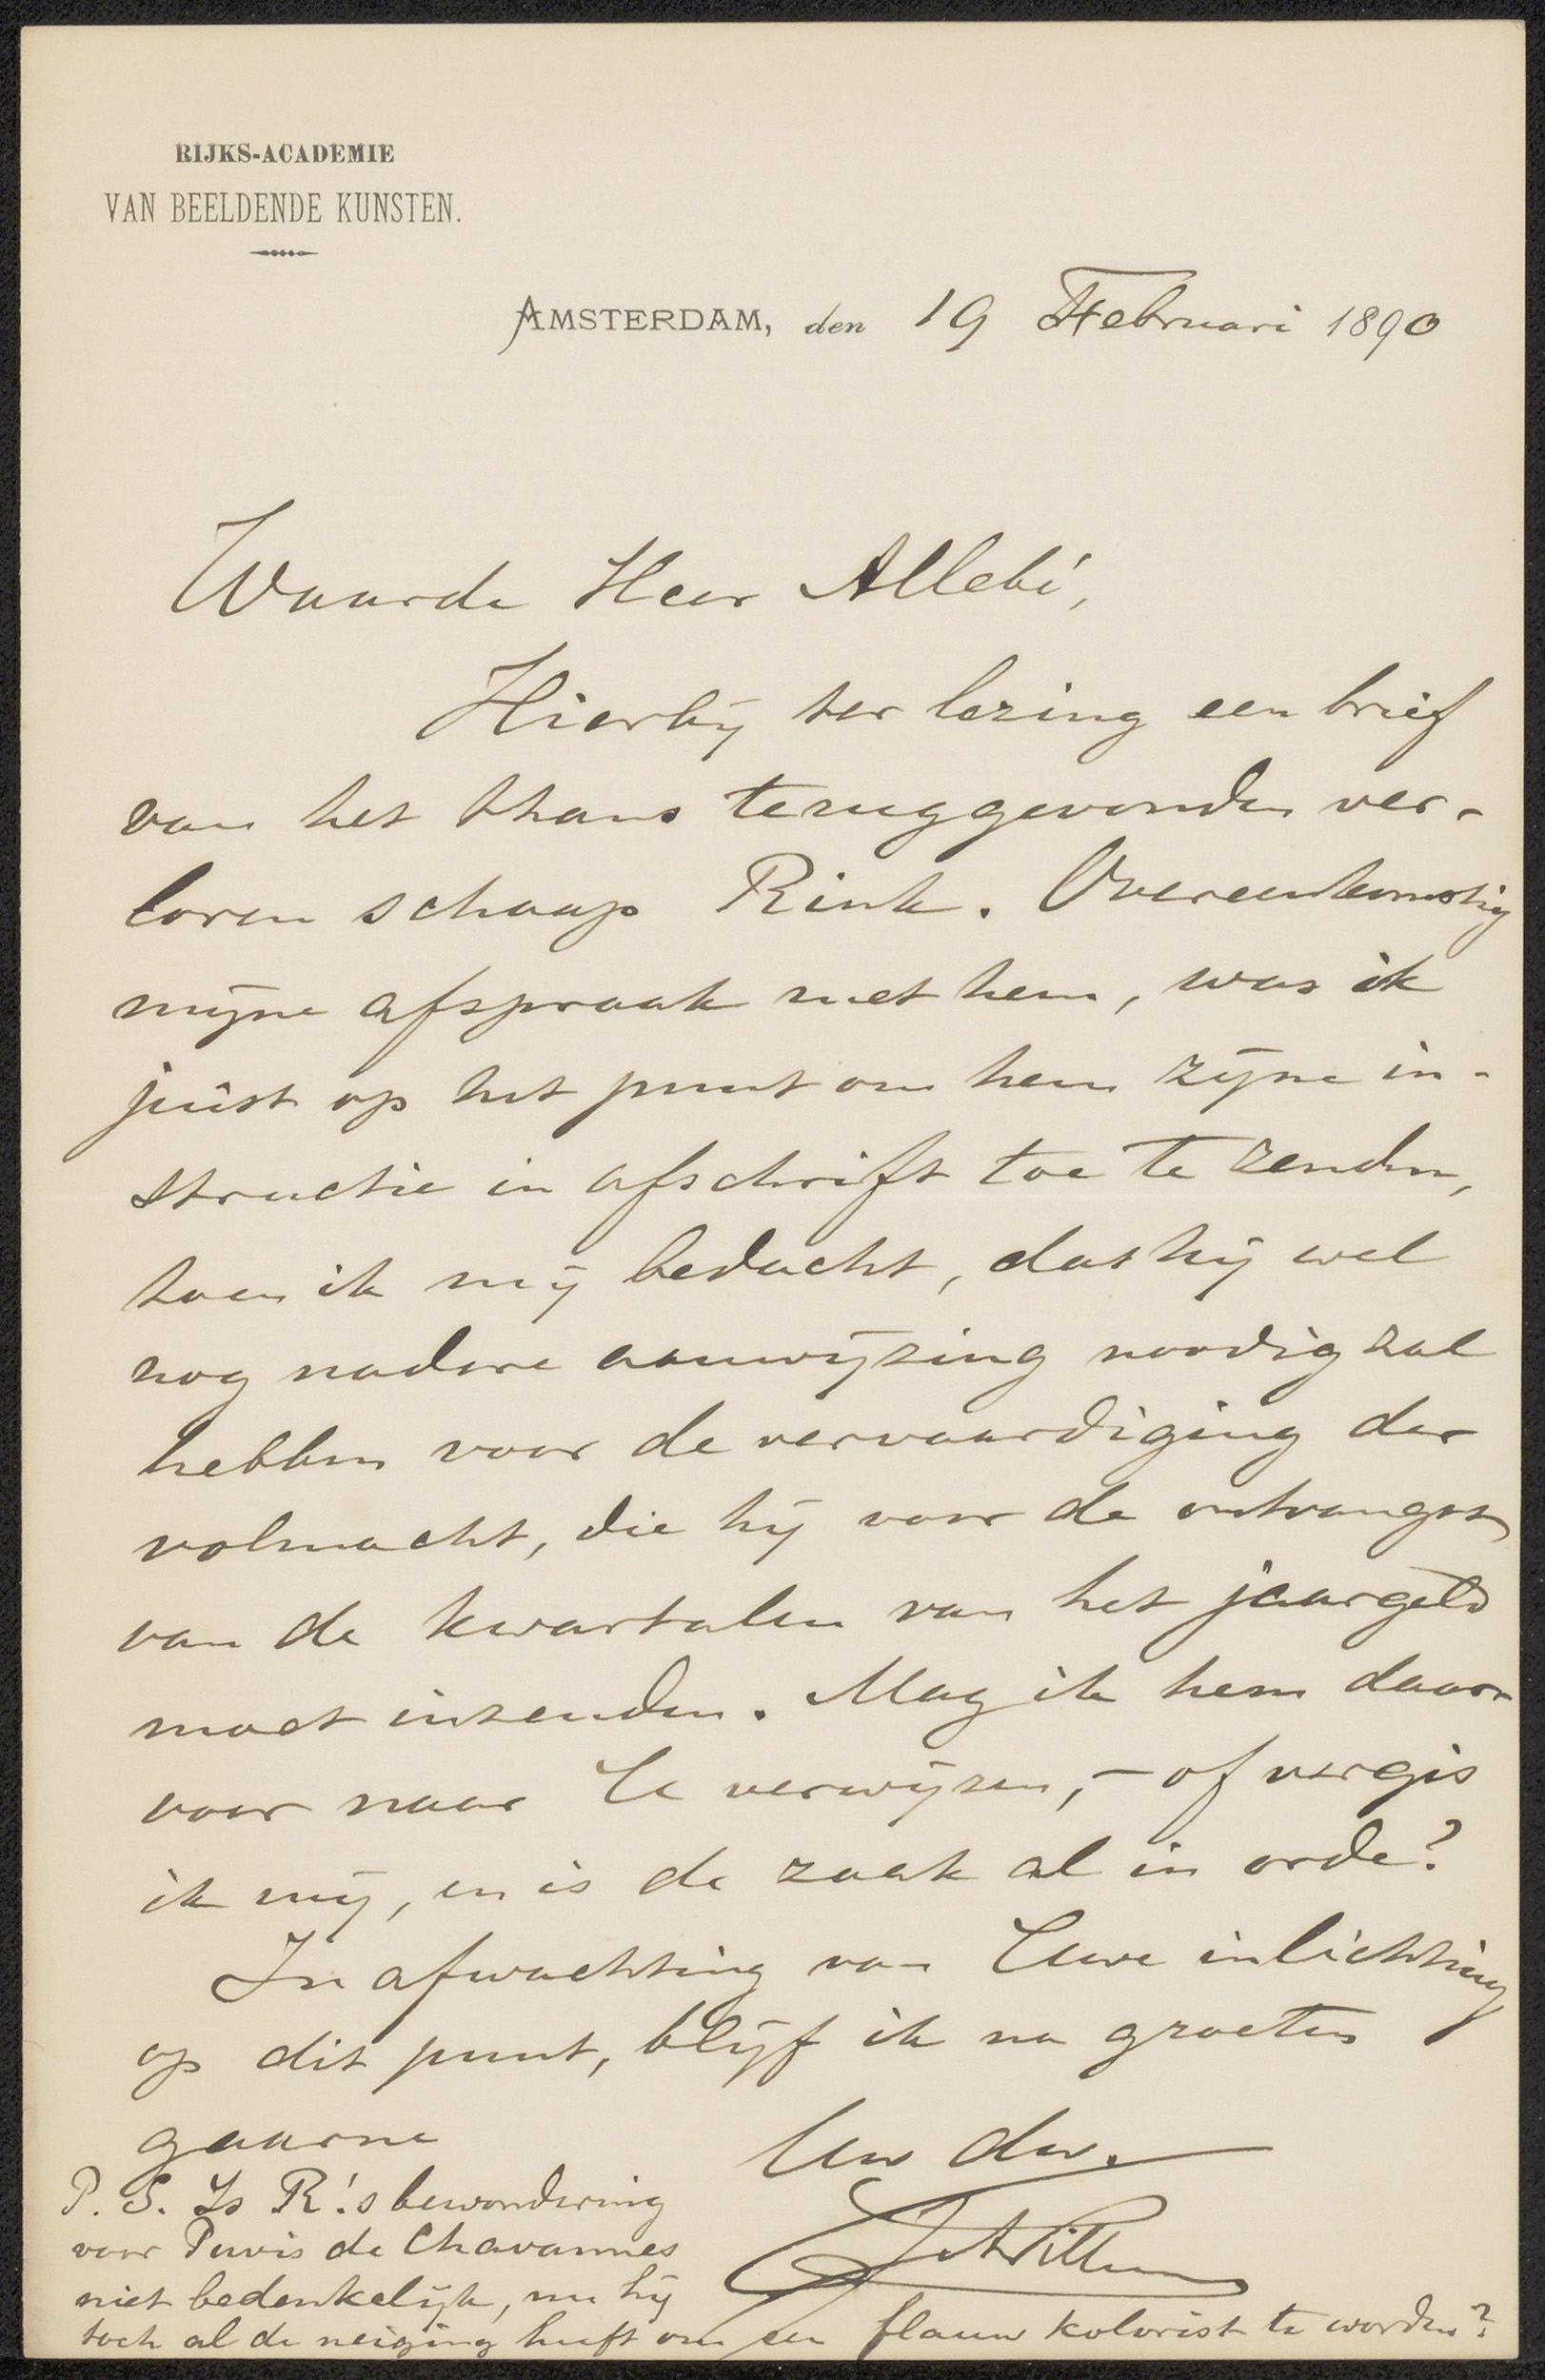 RIJKS-ACADEMIE
VAN BEELDENDE KUNSTEN.
AMSTERDAM, den 19 Februari 1890
Waarde Heer Allebé,
Hierbij ter lezing een brief
van het thans teruggevonden ver-
loren schaap Rink. Overeenkomstig
mijne afspraak met hem, was ik
juist op het punt om hem zijne in-
structie in afschrift toe te zenden,
toen ik mij bedacht, dat hij wel
nog nadere aanwijzing noodig zal
hebben voor de vervaardiging der
volmacht, die hij voor de ontvangst
van de kwartalen van het jaargeld
moet inzenden. Mag ik hem daar-
voor naar U verwijzen, – of vergis
ik mij, en is de zaak al in orde?
In afwachting van Uwe inlichting
op dit punt, blijf ik na groeten
gaarne
Uw dw.
P. S. Is R.'s bewondering
voor Puvis de Chavannes
niet bedenkelijk, nu hij
toch al de neiging heeft om een flauw kolorist te worden?